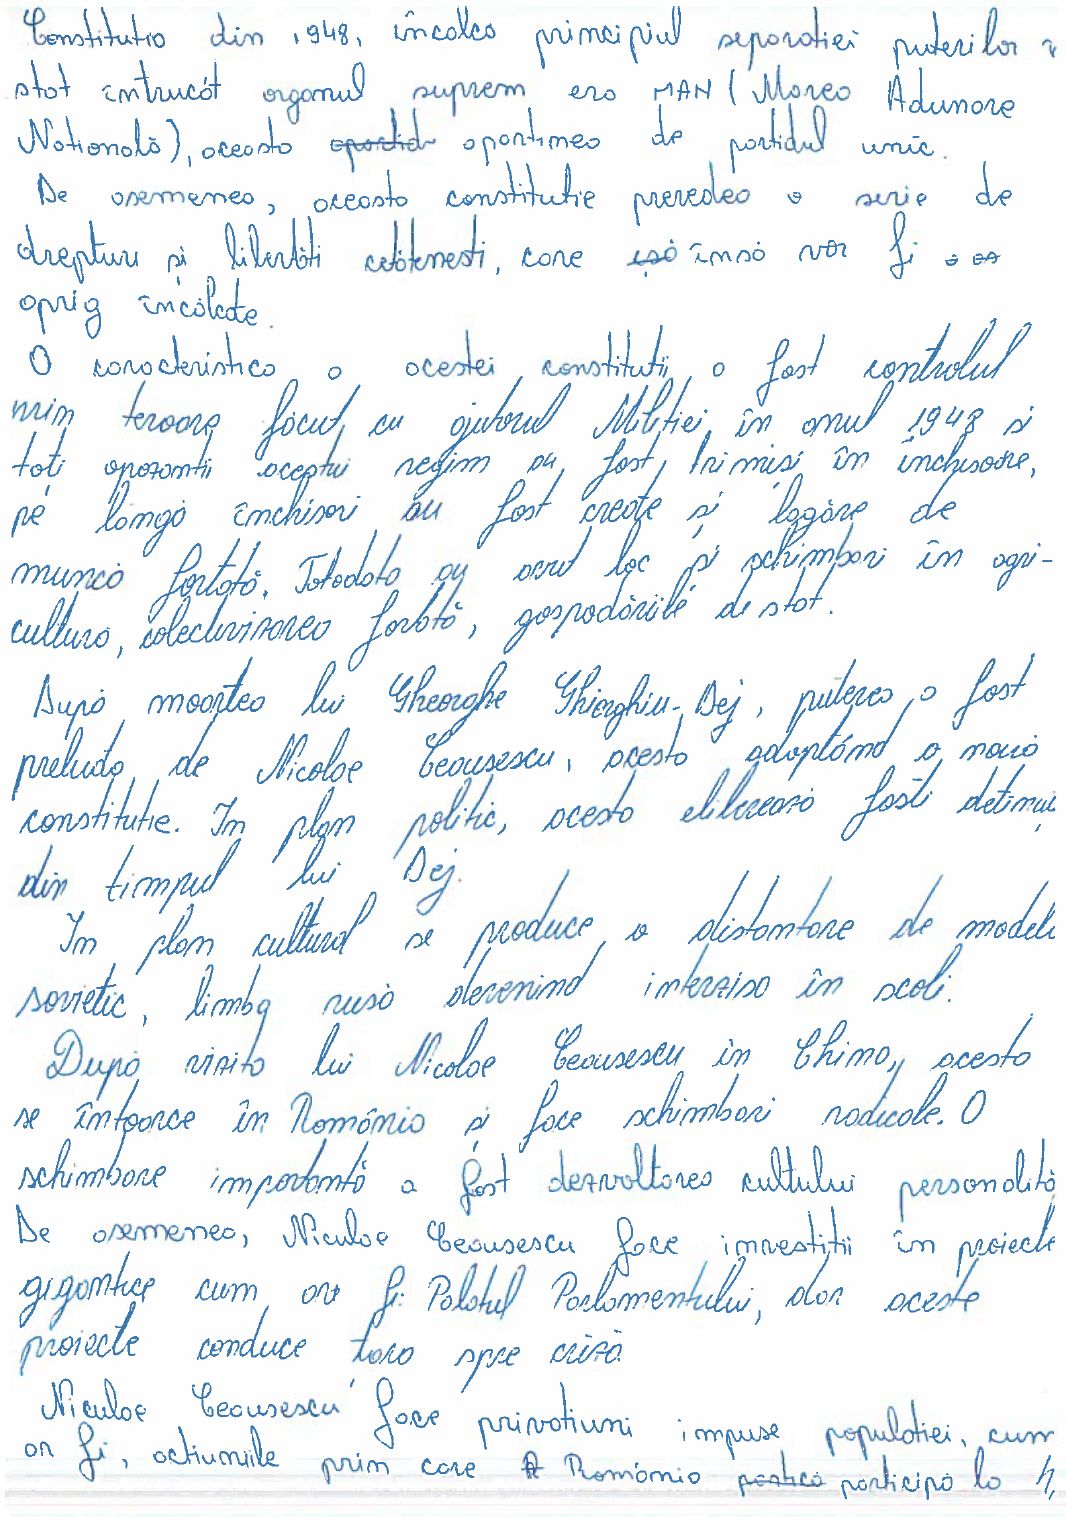 Constituția din 1948, încalca principiul separației puterilor în
stat întrucât organul suprem era MAN (Marea Adunare
Națională), aceasta aparținea de partidul unic.
De asemenea, aceasta constituție prevedea o serie de
drepturi și libertăți cetățenești, care însă vor fi
aprig încălcate.
O caracteristica a acestei constituții a fost controlul
prin teroare făcut cu ajutorul Miliției în anul 1948 și
toți opozanții aceștui regim au fost trimiși în închisoare,
pe lângă închisori au fost create și lagăre de
muncă forțată. Totodata au avut loc și schimbari în agri-
cultura, colectivizarea forțată, gospodăriile de stat.
După moartea lui Gheorghe Ghiorghiu-Dej, puterea a fost
preluată de Nicolae Ceausescu, acesta adoptând o nouă
constituție. In plan politic, acesta eliberează foști deținuț
din timpul lui Dej.
In plan cultural se produce o distantare de model
sovietic, limba rusă devenind interzisa în scoli.
După vizita lui Nicolae Ceausescu în China, acesta
se întoarce în România și face schimbari radicale. O
schimbare importantă a fost dezvoltarea cultului personalită
De asemenea, Niculae Ceausescu face investiții în proiecte
gigantice cum ar fi: Palatul Parlamentului, dar aceste
proiecte conduce tara spre criză.
Niculae Ceausescu face privațiuni impuse populației, cum
ar fi, acțiunile prin care România participă la